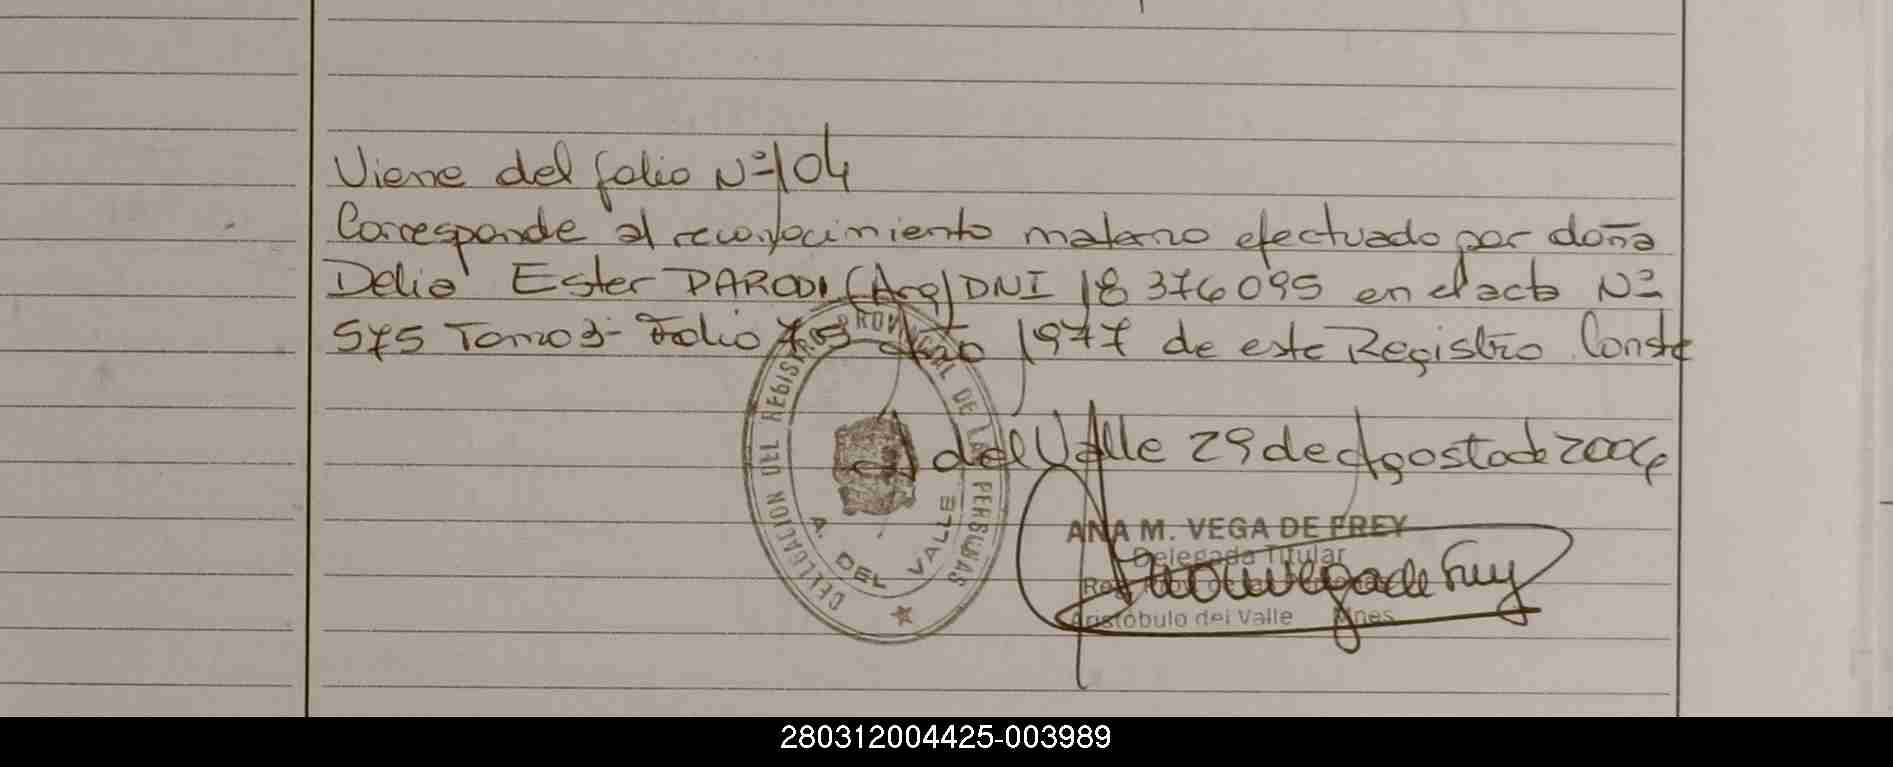 Viene del folio Nº 104
Corresponde al reconocimiento materno efectuado por doña
Delia Ester PARODI (Arg) DNI 18 376 095 en el acta Nº
575 Tomo 3- Folio 75 año 1977 de este Registro Conste
A del Valle 29 de Agosto de 2006
DELEGACION DEL REGISTRO PROVINCIAL DE LAS PERSONAS
A. DEL VALLE
ANA M. VEGA DE FREY
Delegada Titular
Aristóbulo del Valle Mnes
280312004425-003989